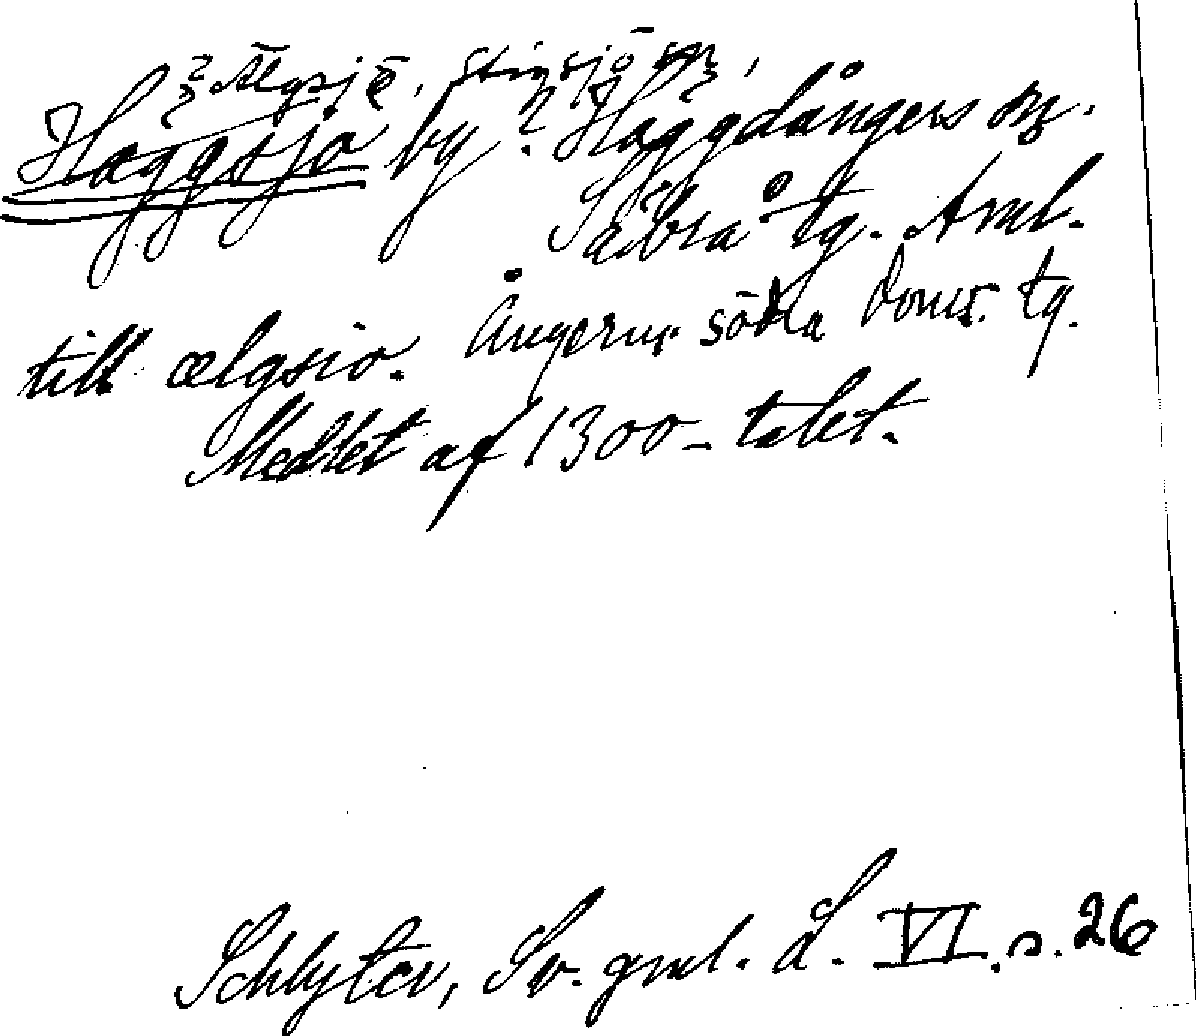 ? Älgsjö, Stigsjö sn,
Häggsjö by ? Häggdångers sn.
Säbrå tg. Åml.
till ælgsio. Ångerm. södra doms. tg.
Medlet af 1300-talet.
Schlyter, Sv. gml. L. VI. s. 26